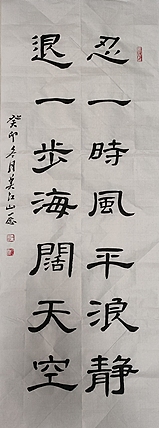 忍一時風平浪静
退一步海闊天空
癸卯冬月吴江山